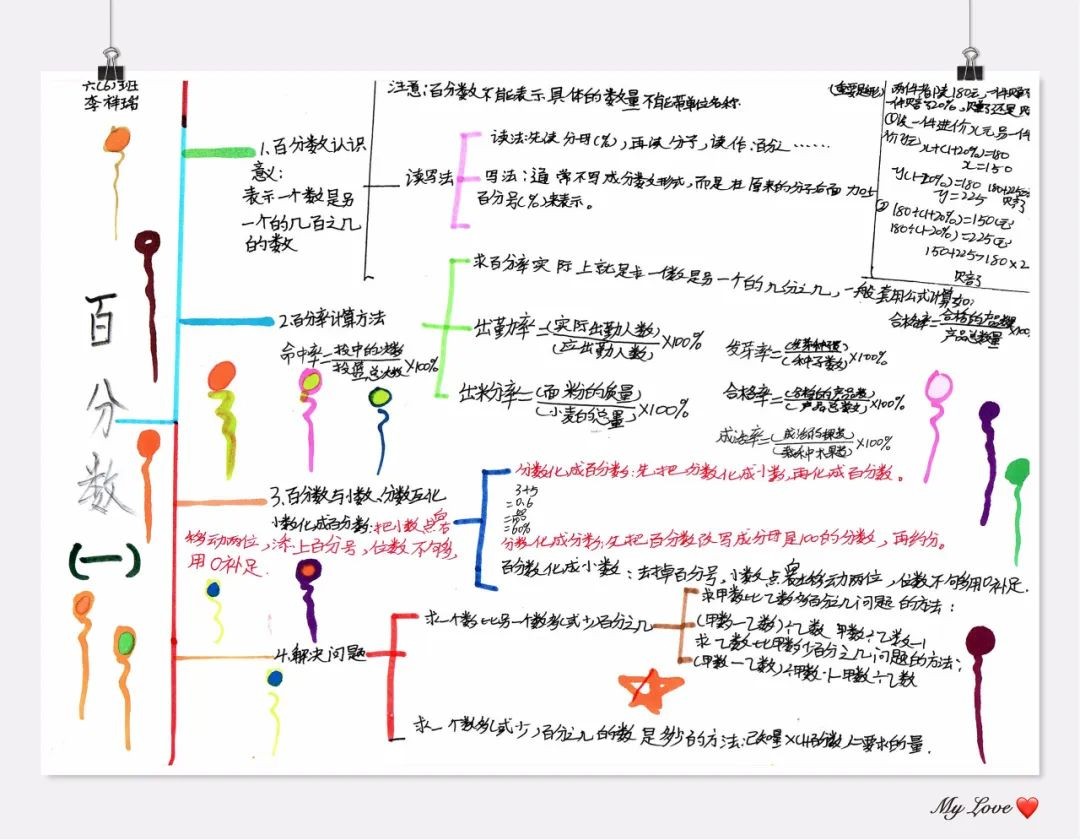 六(6)班
李祥瑞
百分数
(一)
1.百分数认识
意义:
表示一个数是另
一个的几百之几
的数
注意:百分数不能表示具体的数量不能带单位名称.
读写法
读法:先读分母(%),再读分子,读作:百分之……
写法:通常不写成分数形式,而是在原来的分子右面加上
百分号(%)来表示。
(重要题呢)
两件者卖180元,一件赚了
一件亏了20%,
①设一件进价x元另一件
x+(1+20%)=180
x=150
y(1-20%)=180
y=225
② 180÷(1+20%)=150(元)
180÷(1-20%)=225(元)
150+225>180×2
2.百分率计算方法
命中率=投中的次数/投篮总次数×100%
求百分率实际上就是求一个数是另一个的几分之几,一般套用公式计算如:
出勤率=(实际出勤人数)/(应出勤人数)×100%
出粉率=(面粉的质量)/(小麦的总量)×100%
合格率=合格的产品数/产品总数量×100%
发芽率=(发芽种数)/(种子数)×100%
合格率=(合格的产品数)/(产品总数)×100%
3.百分数与小数、分数互化
小数化成百分数:把小数点向右
移动两位,添上百分号,位数不够
用0补足.
分数化成百分数:先把分数化成小数,再化成百分数。
3÷5
=0.6
=60%
分数化成分数:先把百分数改写成分母是100的分数,再约分。
百分数化成小数:去掉百分号,小数点向左移动两位,位数不够用0补足.
4.解决问题
求一个数比另一个数多(或少)百分之几
求甲数比乙数多百分之几问题的方法:
(甲数一乙数)÷乙数 甲数÷乙数-1
求乙数比甲数少百分之几问题的方法:
(甲数一乙数)÷甲数.1-甲数÷乙数
求一个数多(或少)百分之几的数是多少的方法:已知量×(1±百分数)=要求的量.
My Love